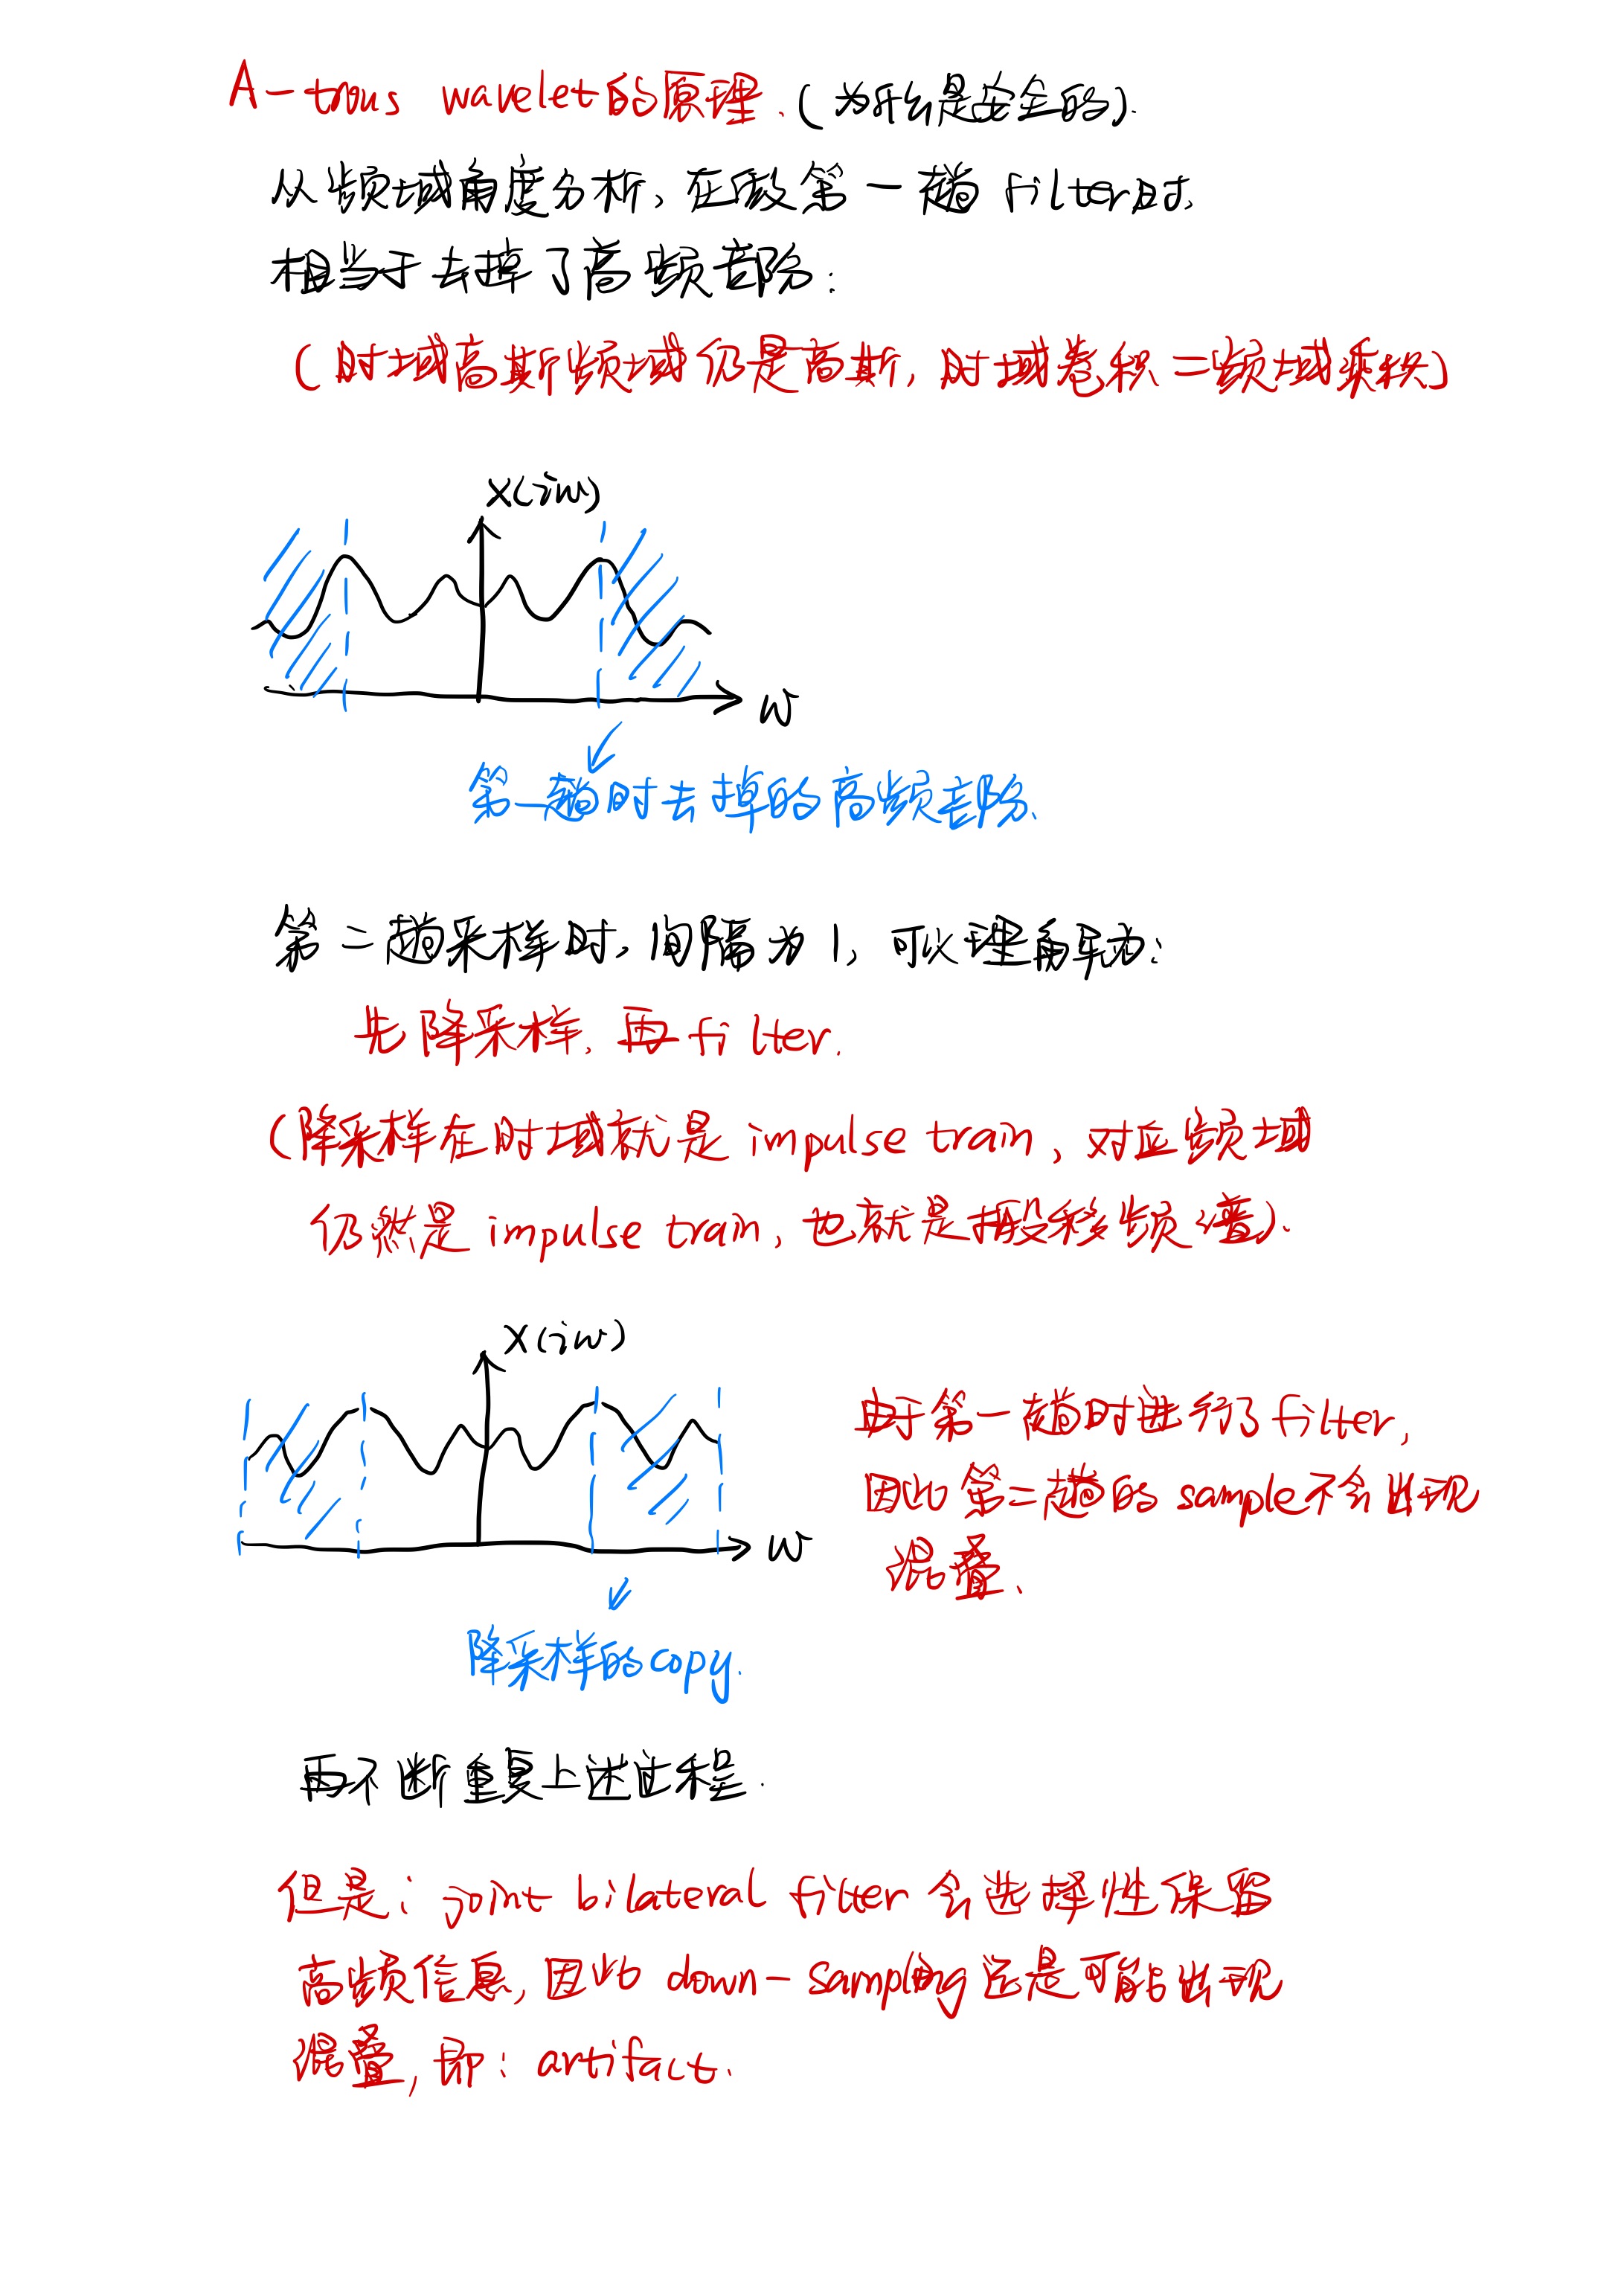 A-trous wavelet的原理.(为什么是安全的).
从频域角度分析,在做第一趟filter时,
相当于去掉了高频部份:
(时域高斯频域仍是高斯,时域卷积=频域乘积)
X(iw)
w
第一趟时去掉的高频部份.
第二趟采样时,间隔为1,可以理解为:
先降采样,再filter.
(降采样在时域就是impulse train,对应频域
仍然是impulse train,也就是搬移频谱).
X(iw)
w
由于第一趟时进行了filter,
因此第二趟的sample不会出现
混叠.
降采样的copy.
再不断重复上述过程.
但是:joint bilateral filter会选择性保留
高频信息,因此down-sampling还是可能出现
混叠,即:artifact.